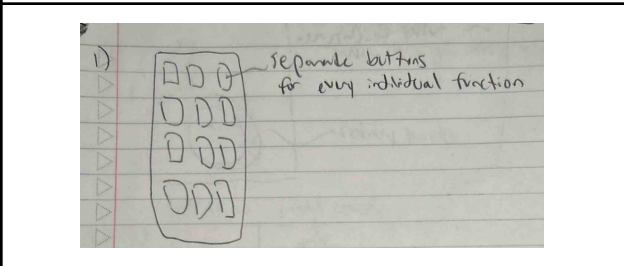 1)
separate buttons
for every individual function